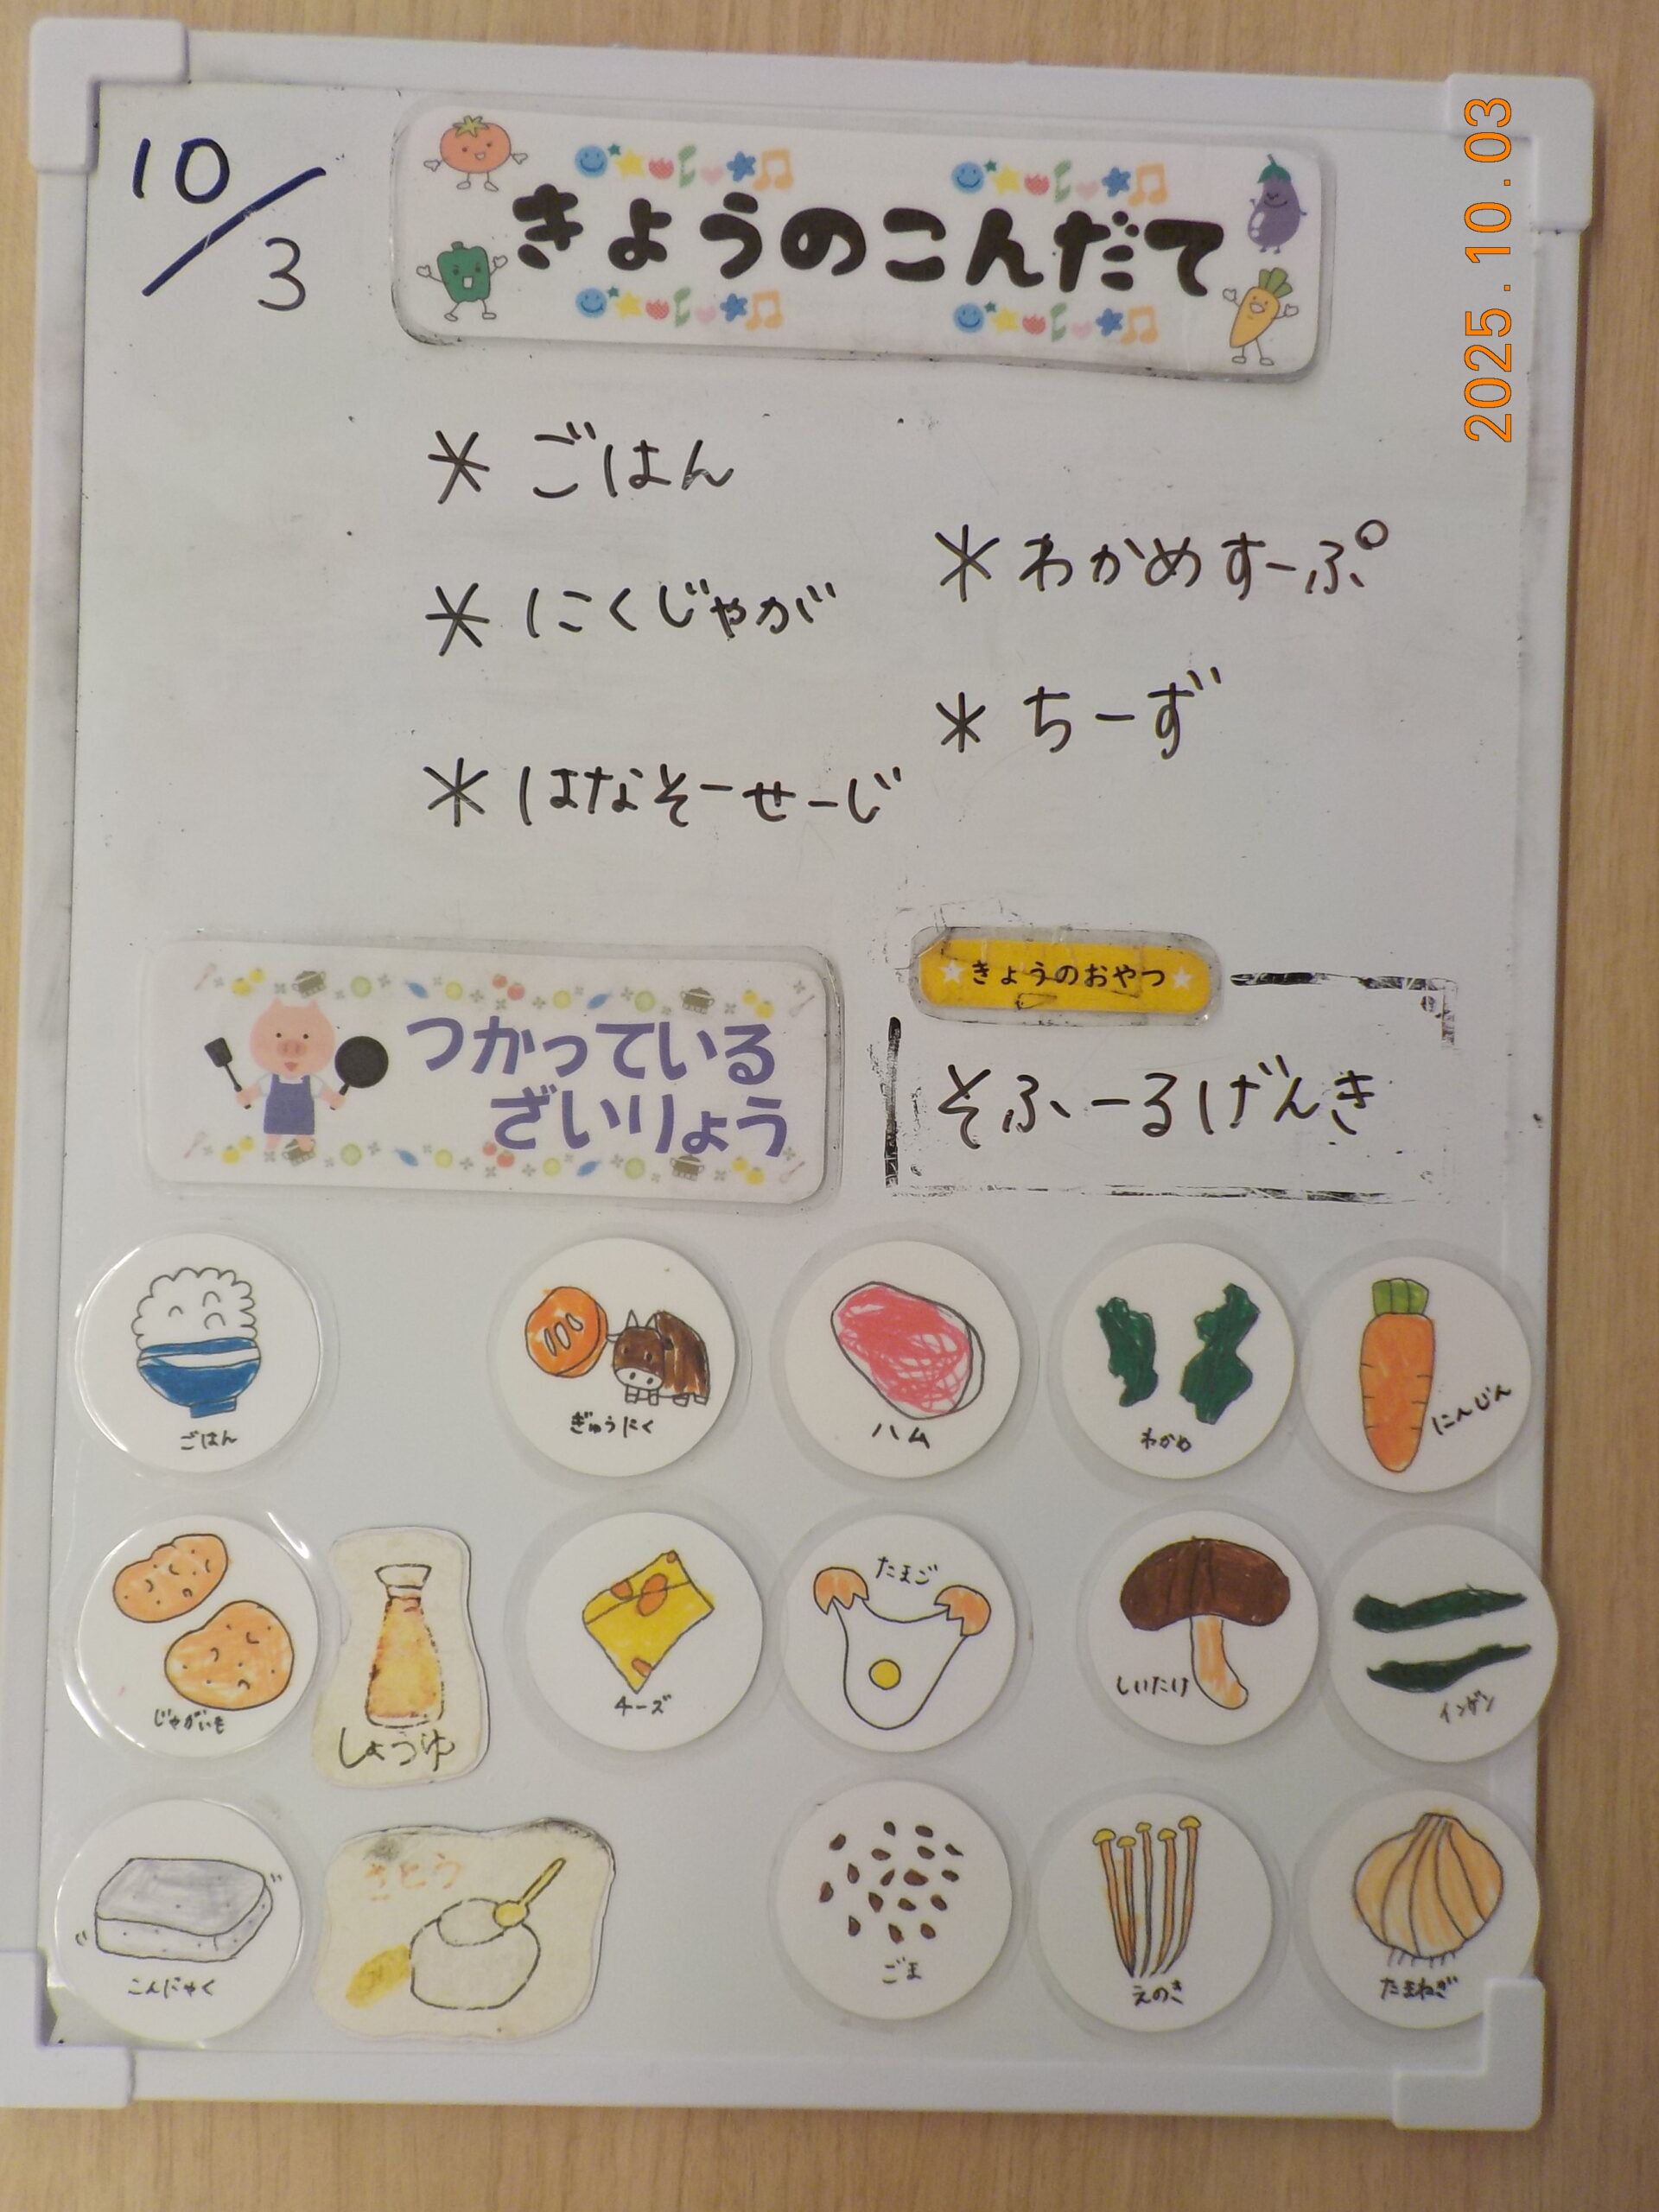 10/3
きょうのこんだて
2025.10.03
* ごはん
* にくじゃが
* はなそーせーじ
* わかめすーぷ
* ちーず
きょうのおやつ
そふーるげんき
つかっている
ざいりょう
ごはん
ぎゅうにく
ハム
わかめ
にんじん
じゃがいも
しょうゆ
チーズ
たまご
しいたけ
インゲン
こんにゃく
さとう
ごま
えのき
たまねぎ